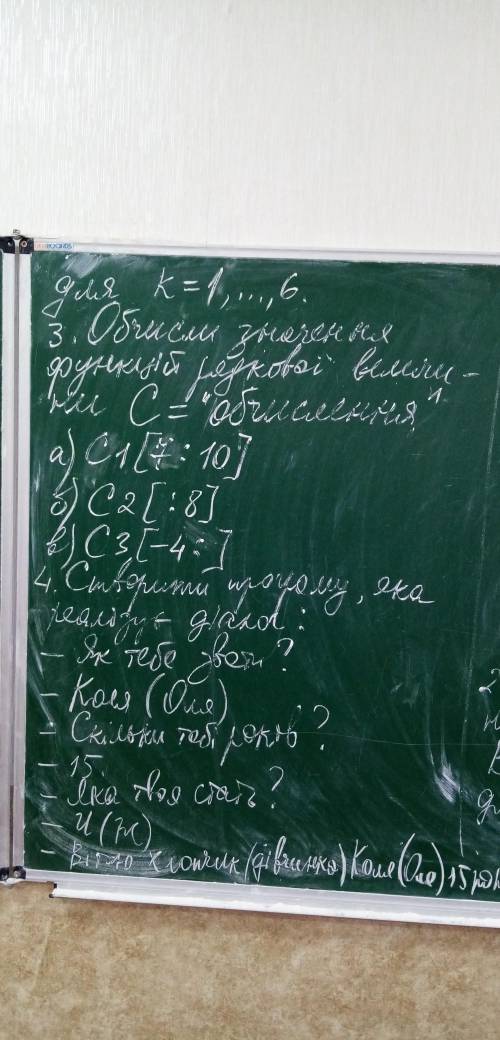 BOARDS
для k=1,...,6.
3. Обчисли значення
функцій рядкової величи-
ни C = "обчислення"
а) C1[7:10]
б) C2[:8]
в) C3[-4:]
4. Створити програму, яка
реалізує діалог:
- Як тебе звати?
- Коля (Оля)
- Скільки тобі років?
- 15.
- Яка твоя стать?
- Ч (ж)
- Вітаю хлопчик (дівчинка) Коля (Оля) 15 рок
2